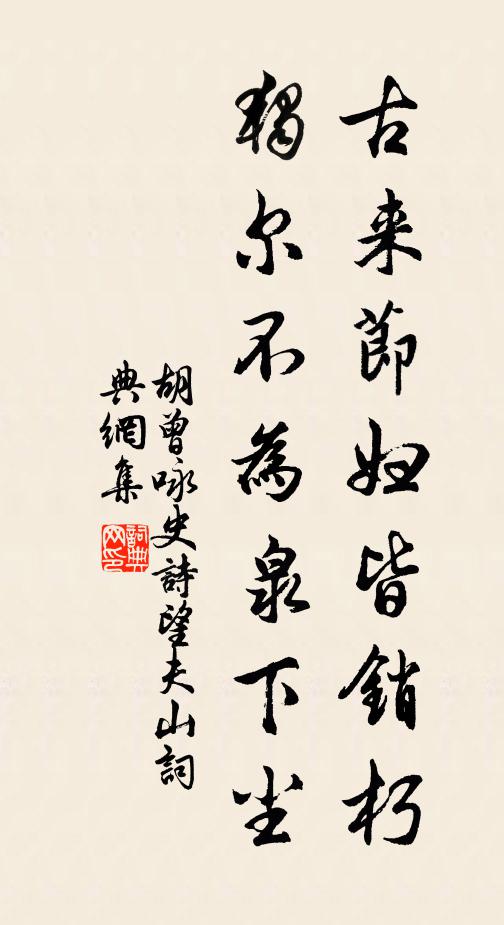 古来節妇皆銷朽
獨尔不為泉下尘
胡曾咏史詩望夫山詞
典網集
詞典
网印